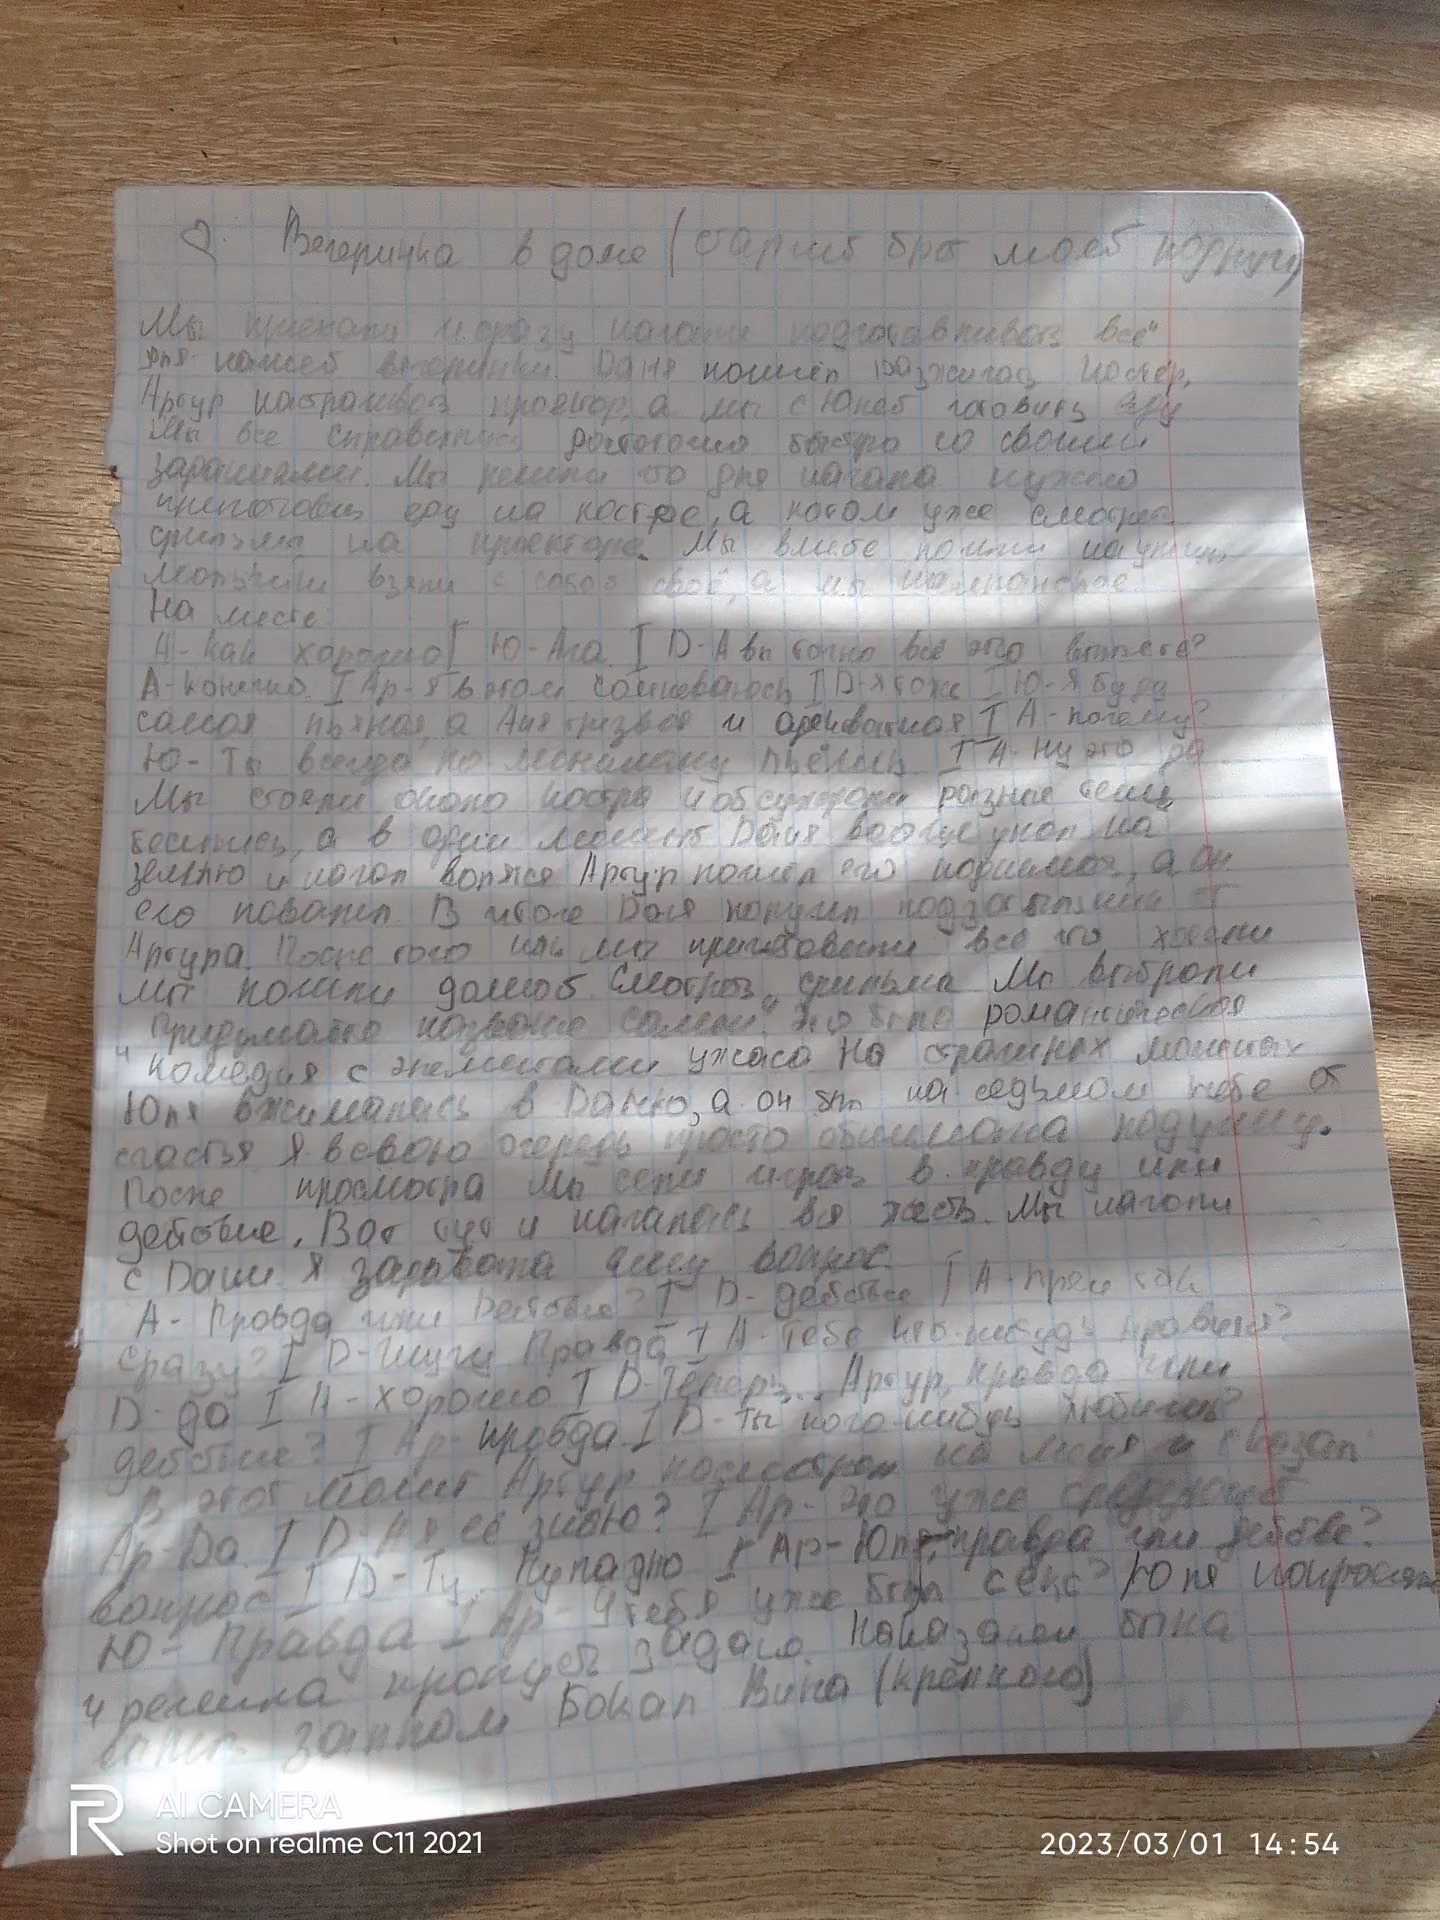 Вечеринка в доме (старший брат моей подруги)
Мы приехали и сразу начали подготавливать всё
для нашей вечеринки. Даня пошёл разжигать костёр,
Артур настраивать проектор, а мы с Юлей готовить еду
Мы все справились достаточно быстро со своими
заданиями. Мы решили что для начала нужно
приготовить еду на костре, а потом уже смотреть
фильмы на проекторе. Мы вместе пошли на улицу,
мальчики взяли с собой своё, а мы шампанское.
На месте:
А- как хорошо I Ю- Ага I D- А вы точно всё это выпьете?
А- конечно. I Ар- я в этом сомневаюсь I D- я тоже I Ю- я буду
самая пьяная, а Аня трезвая и адекватная I А- почему?
Ю- Ты всегда по меньшему пьёшь I А- Ну это да
Мы стояли около костра и обсуждали разные темы,
бесились, а в один момент Даня вообще упал на
землю и начал валяться Артур пошёл его поднимать, а он
его повалил. В итоге Даня получил подзатыльник от
Артура. После того как мы приготовили всё что хотели
мы пошли домой. Смотреть фильмы Мы выбрали
"Придумайте название сами". Это была романтическая
комедия с элементами ужаса На страшных моментах
Юля вжималась в Даню, а он был на седьмом небе от
счастья Я в свою очередь просто обнимала подушку.
После просмотра мы сели играть в правду или
действие. Вот тут и началась вся жесть. Мы начали
с Дани. Я задавала ему вопрос.
А- Правда или Действие? I D- действие I А- Прям так
сразу? I D- Шучу Правда I А- Тебе кто-нибудь нравится?
D- да I А- хорошо I D- Теперь... Артур, правда или
действие? I Ар- правда I D- Ты кого-нибудь любишь?
В этот момент Артур посмотрел на меня и сказал
Ар- Да I D- А я её знаю? I Ар- Это уже следующий
вопрос I D- Ну.. Ладно I Ар- Юля, правда или действие?
Ю- Правда I Ар- У тебя уже был секс? Юля
и решила пропустить задание. Наказанием было
выпить залпом Бокал Вина (крепкого)
AI CAMERA
Shot on realme C11 2021
2023/03/01 14:54